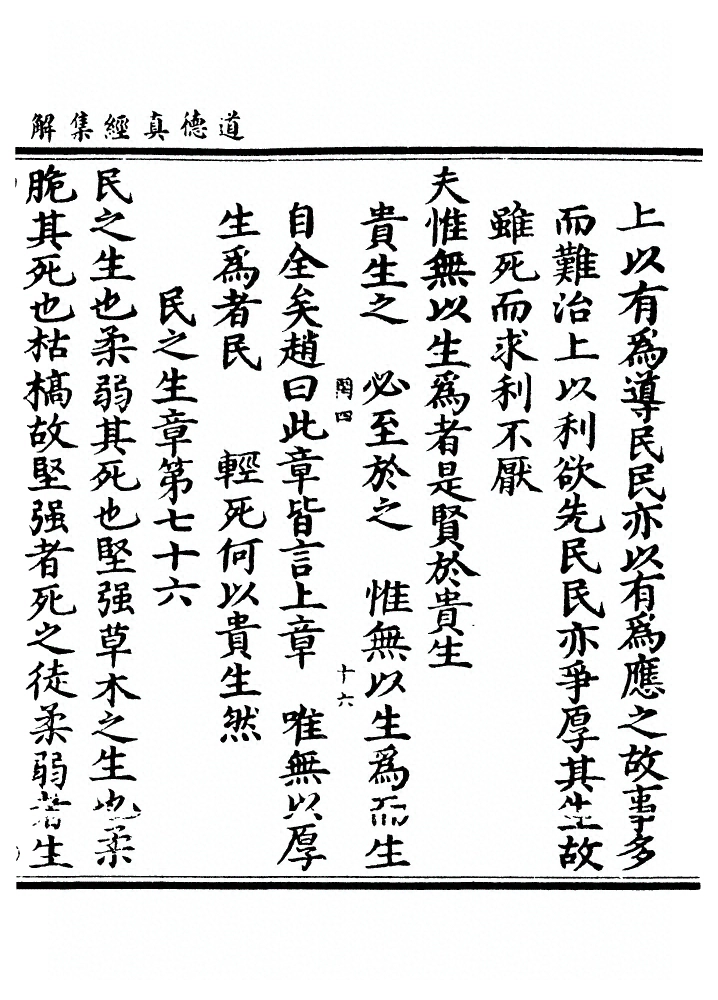 道德真經集解
上以有爲導民民亦以有爲應之故事多
而難治上以利欲先民民亦爭厚其生故
雖死而求利不厭
夫惟無以生爲者是賢於貴生
貴生之　必至於之　惟無以生爲而生
過四　十六
自全矣趙曰此章皆言上章　唯無以厚
生爲者民　輕死何以貴生然
民之生章第七十六
民之生也柔弱其死也堅强草木之生也柔
脆其死也枯槁故堅强者死之徒柔弱者生